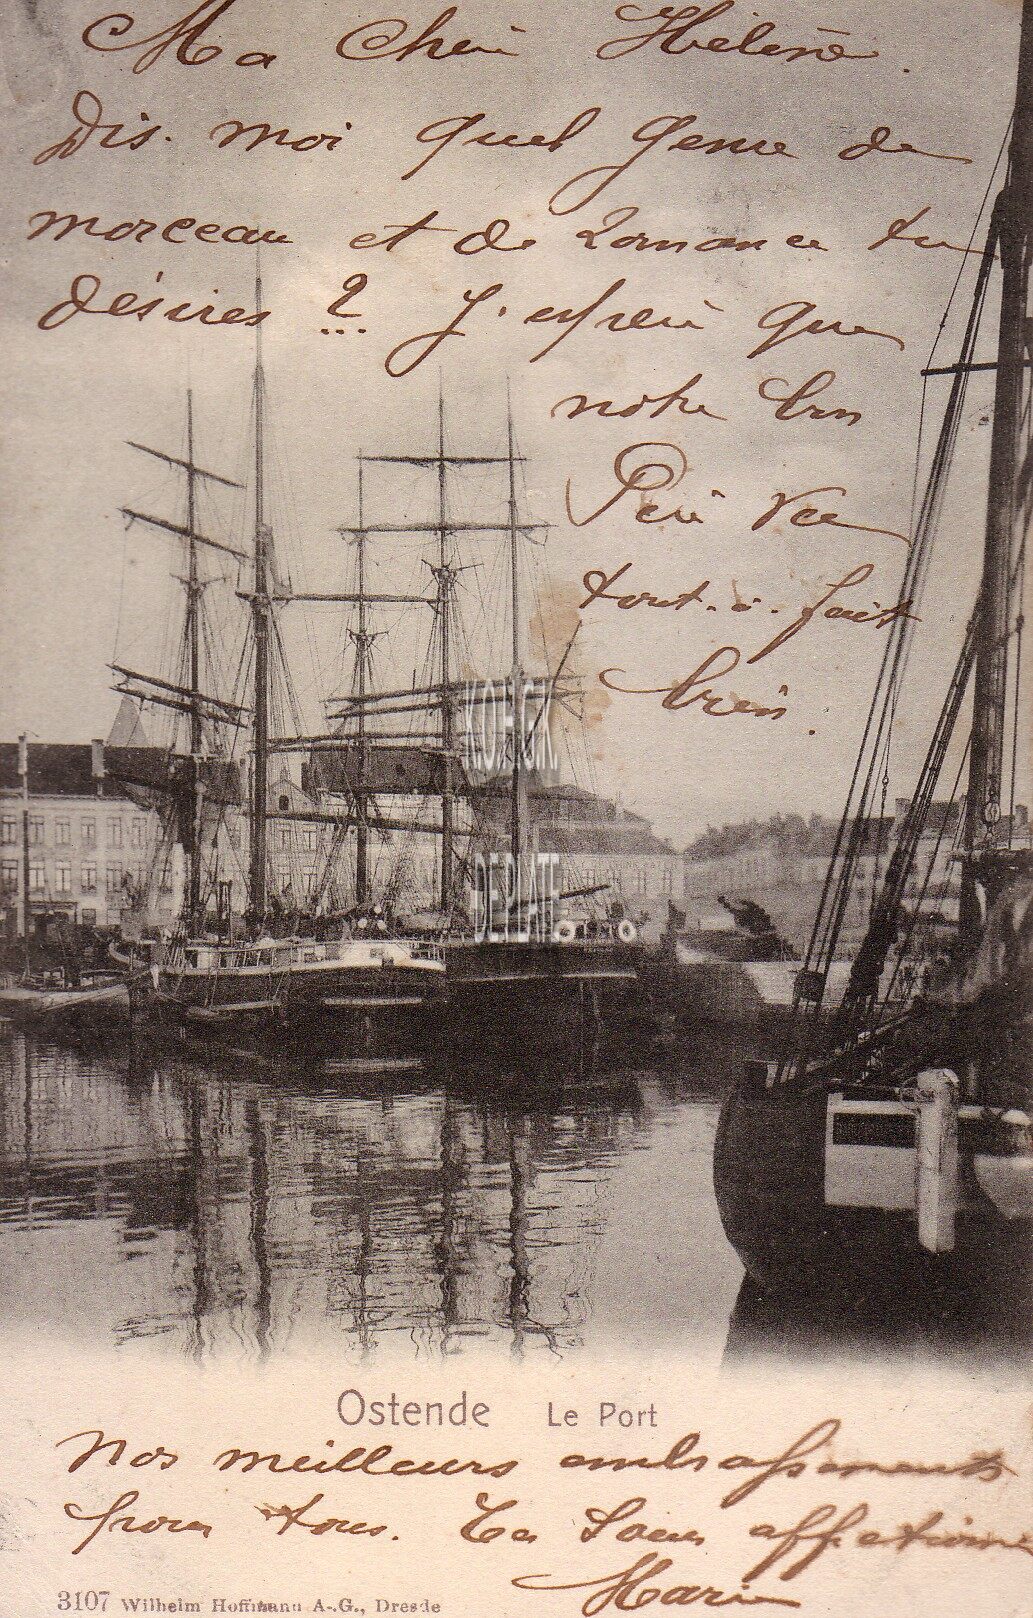 Ma Chère Hélène.
Dis-moi quel genre de
morceau et de romance tu
désires ? J'espère que
notre bon
Père va
tout-à-fait
bien.
KOEN GK
DEPLATE
Ostende Le Port
Nos meilleurs embrassements
pour tous. Ta Soeur affectionné
Marie
3107 Wilhelm Hoffmann A-.G., Dresde